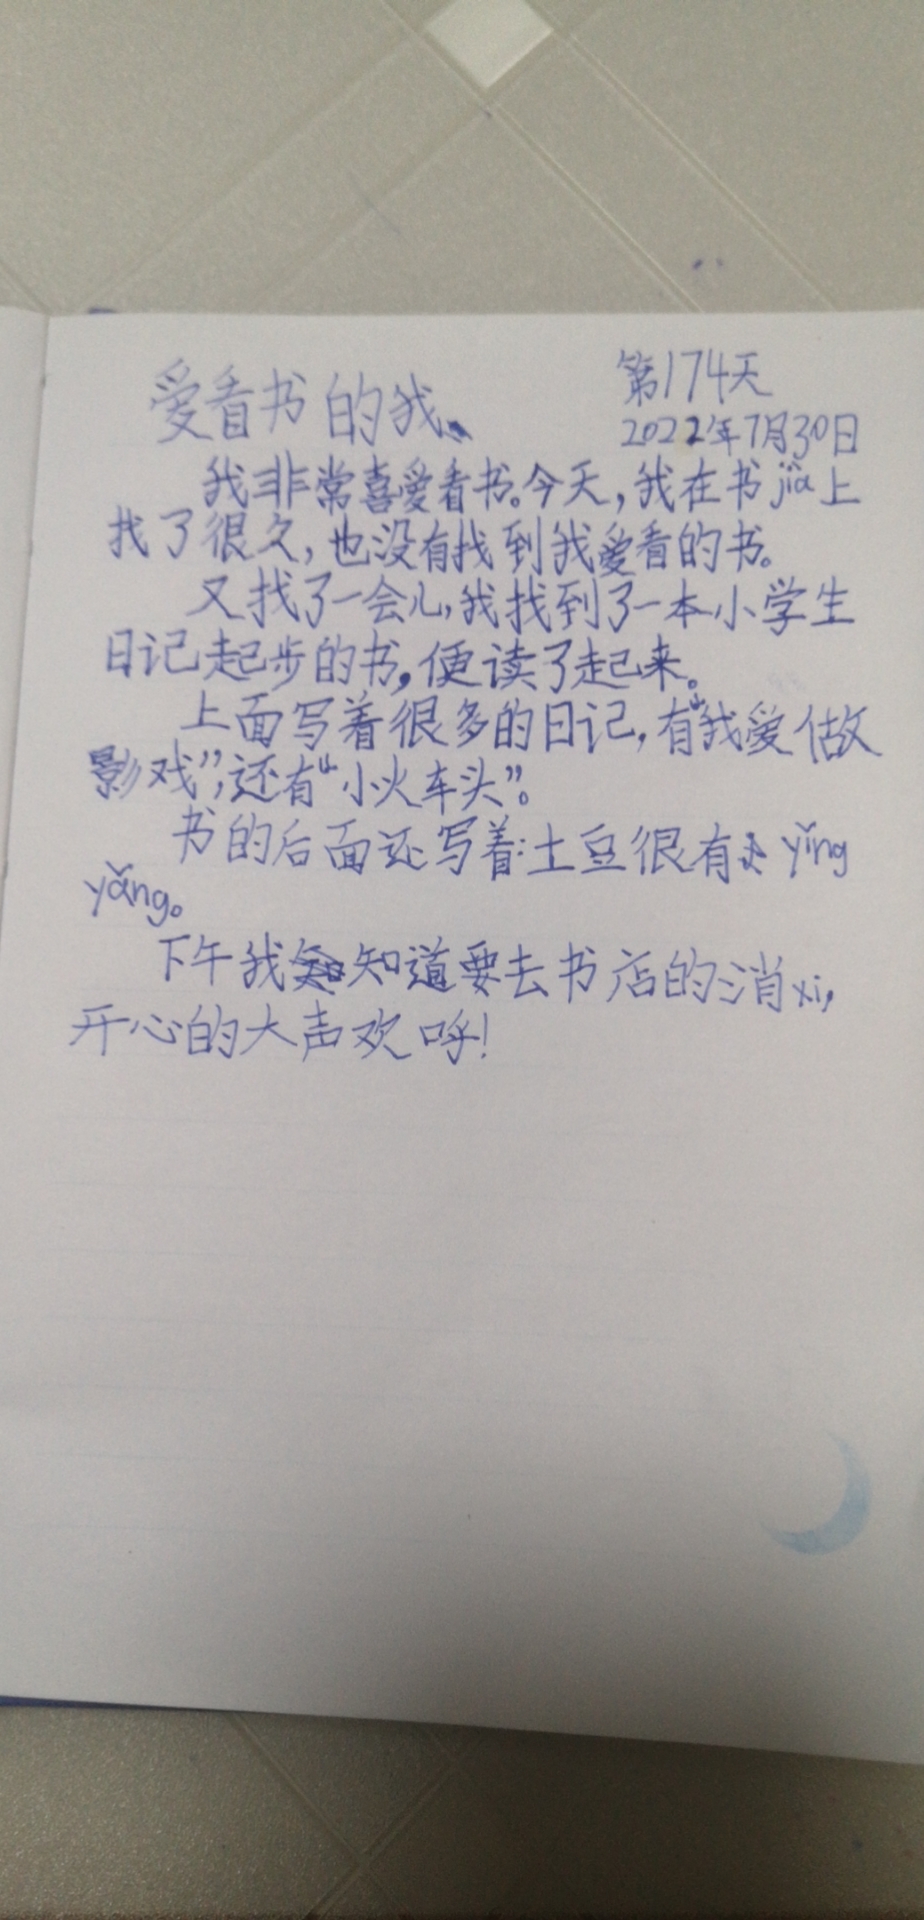 爱看书的我 第174天
2022年7月30日
我非常喜爱看书。今天，我在书jià上
找了很久，也没有找到我爱看的书。
又找了一会儿，我找到了一本小学生
日记起步的书，便读了起来。
上面写着很多的日记，有“我爱做
影戏”，还有“小火车头”。
书的后面还写着：土豆很有yǐng
yǎng。
下午我知道要去书店的消xi，
开心的大声欢呼！